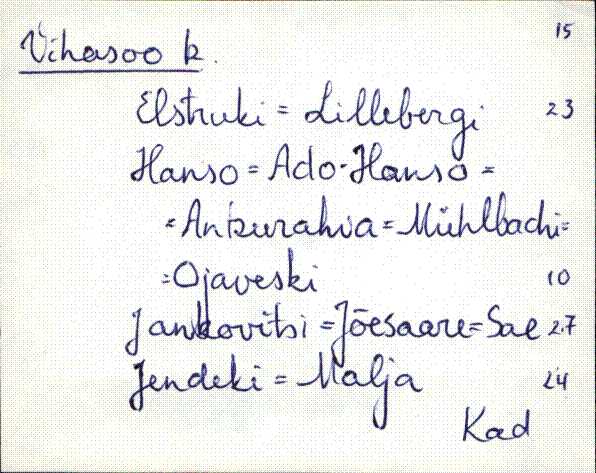 15
Vihasoo k.
Elstruki = Lillebergi 23
Hanso = Ado-Hanso =
= Ankurahva = Mühlbachi =
= Ojaveski 10
Jankovitsi = Jõesaare = Sae 27
Jendeki = Malja 24
Kad